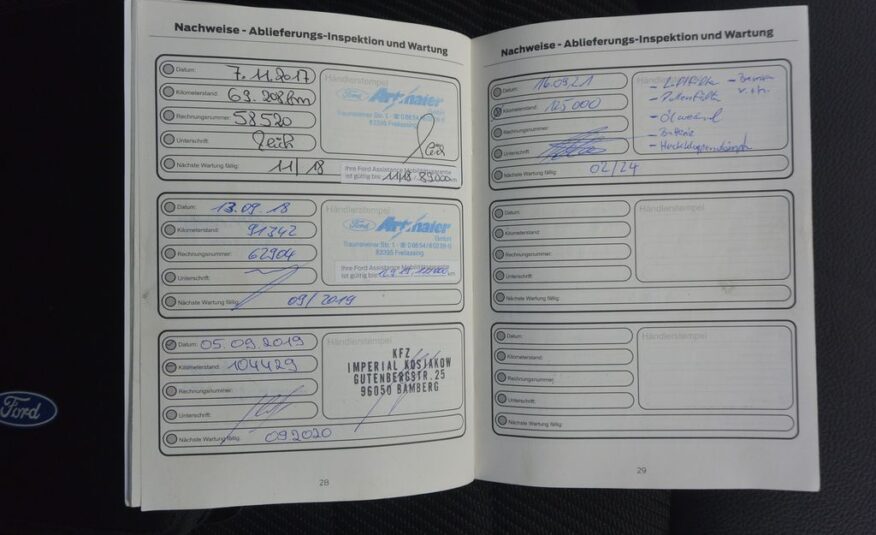 Nachweise - Ablieferungs-Inspektion und Wartung
Datum: 7.11.2017
Kilometerstand: 69.208km
Rechnungsnummer: 58520
Unterschrift:
Nächste Wartung fällig: 11/18
Händlerstempel
Ford Artmaier
Traunsteiner Str. 1
83395 Freilassing
Ihre Ford Assistance Mobilitätsgarantie
ist gültig bis 11/18 89.000 km
Datum: 13.09.18
Kilometerstand: 91342
Rechnungsnummer: 62904
Unterschrift:
Nächste Wartung fällig: 09/2019
Händlerstempel
Ford Artmaier
GmbH
Traunsteiner Str. 1
83395 Freilassing
Ihre Ford Assistance Mobilitätsgarantie
ist gültig bis
Datum: 05.09.2019
Kilometerstand: 104429
Rechnungsnummer:
Unterschrift:
Nächste Wartung fällig: 092020
Händlerstempel
KFZ
IMPERIAL KOSJAKOW
GUTENBERGSTR.25
96050 BAMBERG
28
Nachweise - Ablieferungs-Inspektion und Wartung
Datum: 16.09.21
Kilometerstand: 125000
Rechnungsnummer:
Unterschrift:
Nächste Wartung fällig: 02/24
- Luftfilter
- Bremsen
v. + h.
- Pollenfilter
- Ölwechsel
- Batterie
- Heckklappendämpfer
Datum:
Kilometerstand:
Rechnungsnummer:
Unterschrift:
Nächste Wartung fällig:
Händlerstempel
Datum:
Kilometerstand:
Rechnungsnummer:
Unterschrift:
Nächste Wartung fällig:
Händlerstempel
29
Ford